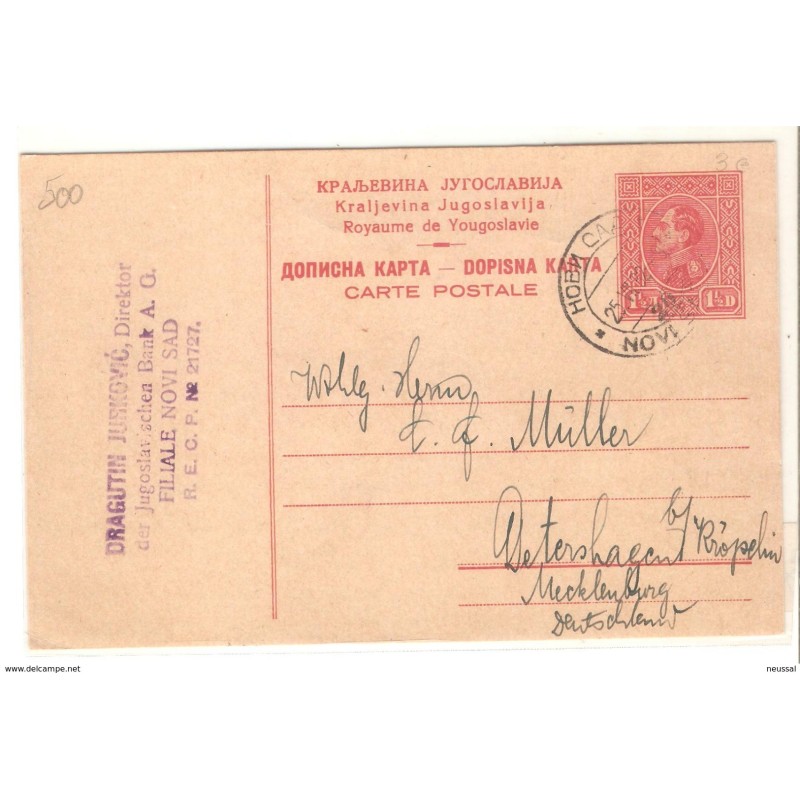 500
3
КРАЉЕВИНА ЈУГОСЛАВИЈА
Kraljevina Jugoslavija
Royaume de Yougoslavie
ДОПИСНА КАРТА — DOPISNA KARTA
CARTE POSTALE
1½D
НОВИ САД
25
NOVI
DRAGUTIN JURKOVIĆ, Direktor
der Jugoslavischen Bank A. G.
FILIALE NOVI SAD
R. E. C. P. № 21727.
Wohlg. Herrn
Müller
Detershagen b/ Kröpelin
Mecklenburg
Deutschland
www.delcampe.net
neussal